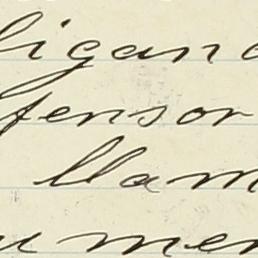 ligand
fensor
llam
u men